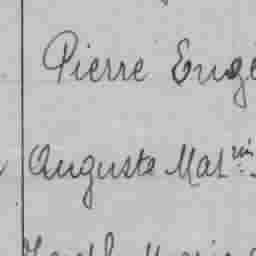 Pierre Eugè
Auguste Mat^in